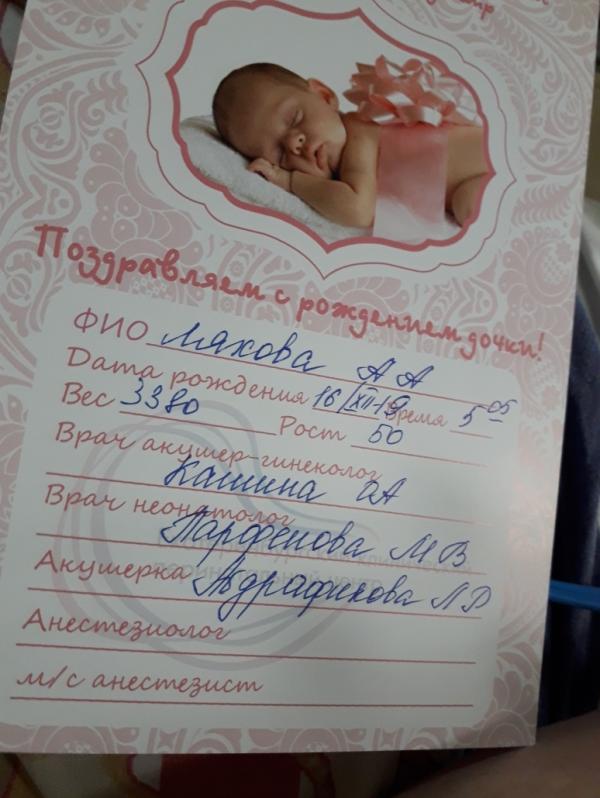 Поздравляем с рождением дочки!
ФИО Ляхова А А
Дата рождения 16/XII-19 Время 5 05
Вес 3380 Рост 50
Врач акушер-гинеколог
Кашина ОА
Врач неонатолог
Парфенова М В
Акушерка Ладрафикова Л Р
Анестезиолог
м/с анестезист